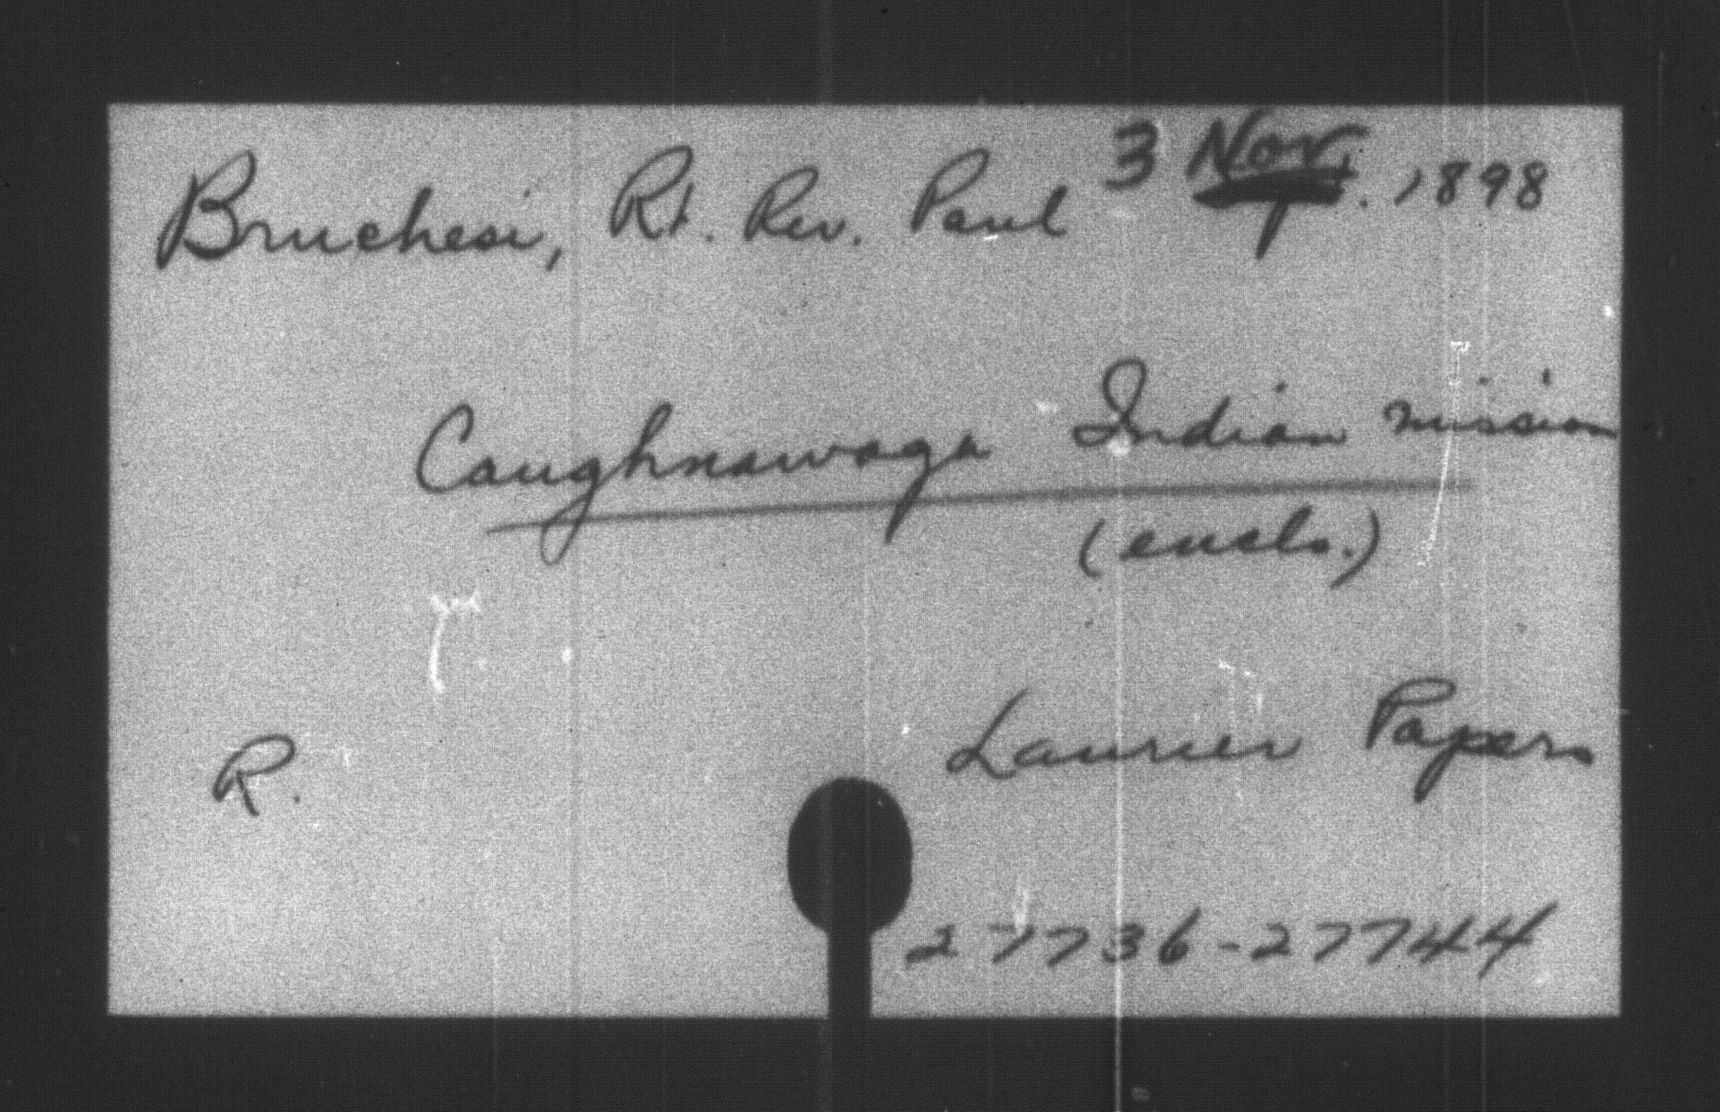 Bruchesi, Rt. Rev. Paul 3 Nov. 1898
Caughnawaga Indian mission
(encls.)
R.
Laurier Papers
27736-27744